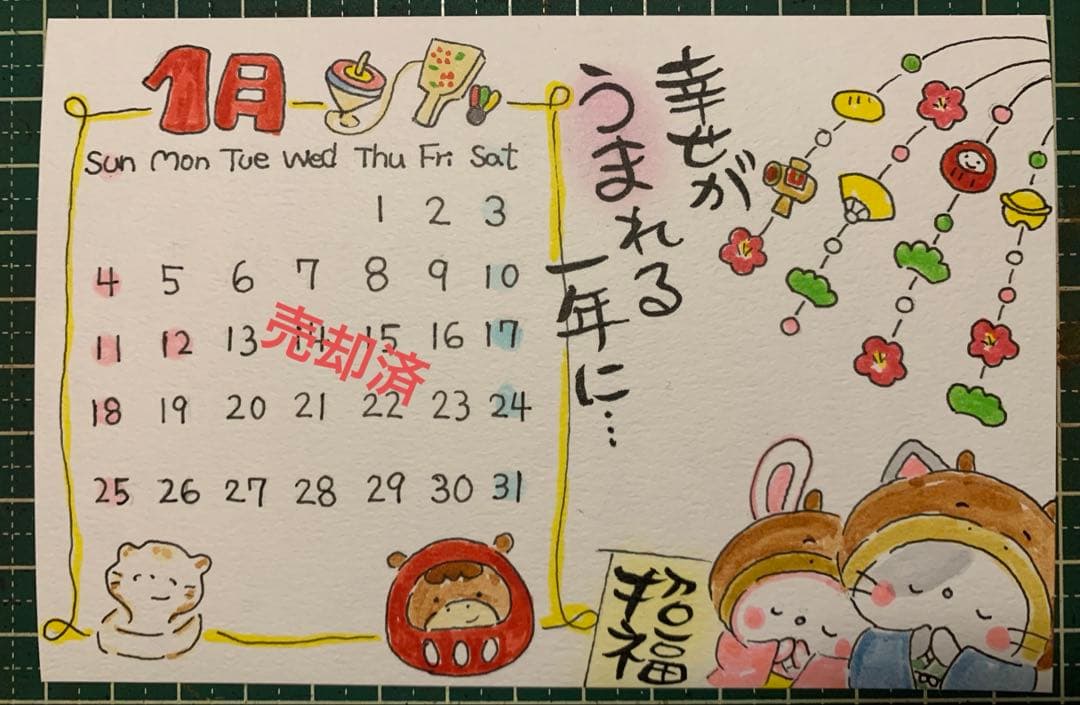 1月
Sun Mon Tue Wed Thu Fri Sat
1 2 3
4 5 6 7 8 9 10
11 12 13 14 15 16 17
18 19 20 21 22 23 24
25 26 27 28 29 30 31
売却済
幸せが
うまれる
一年に…
招福